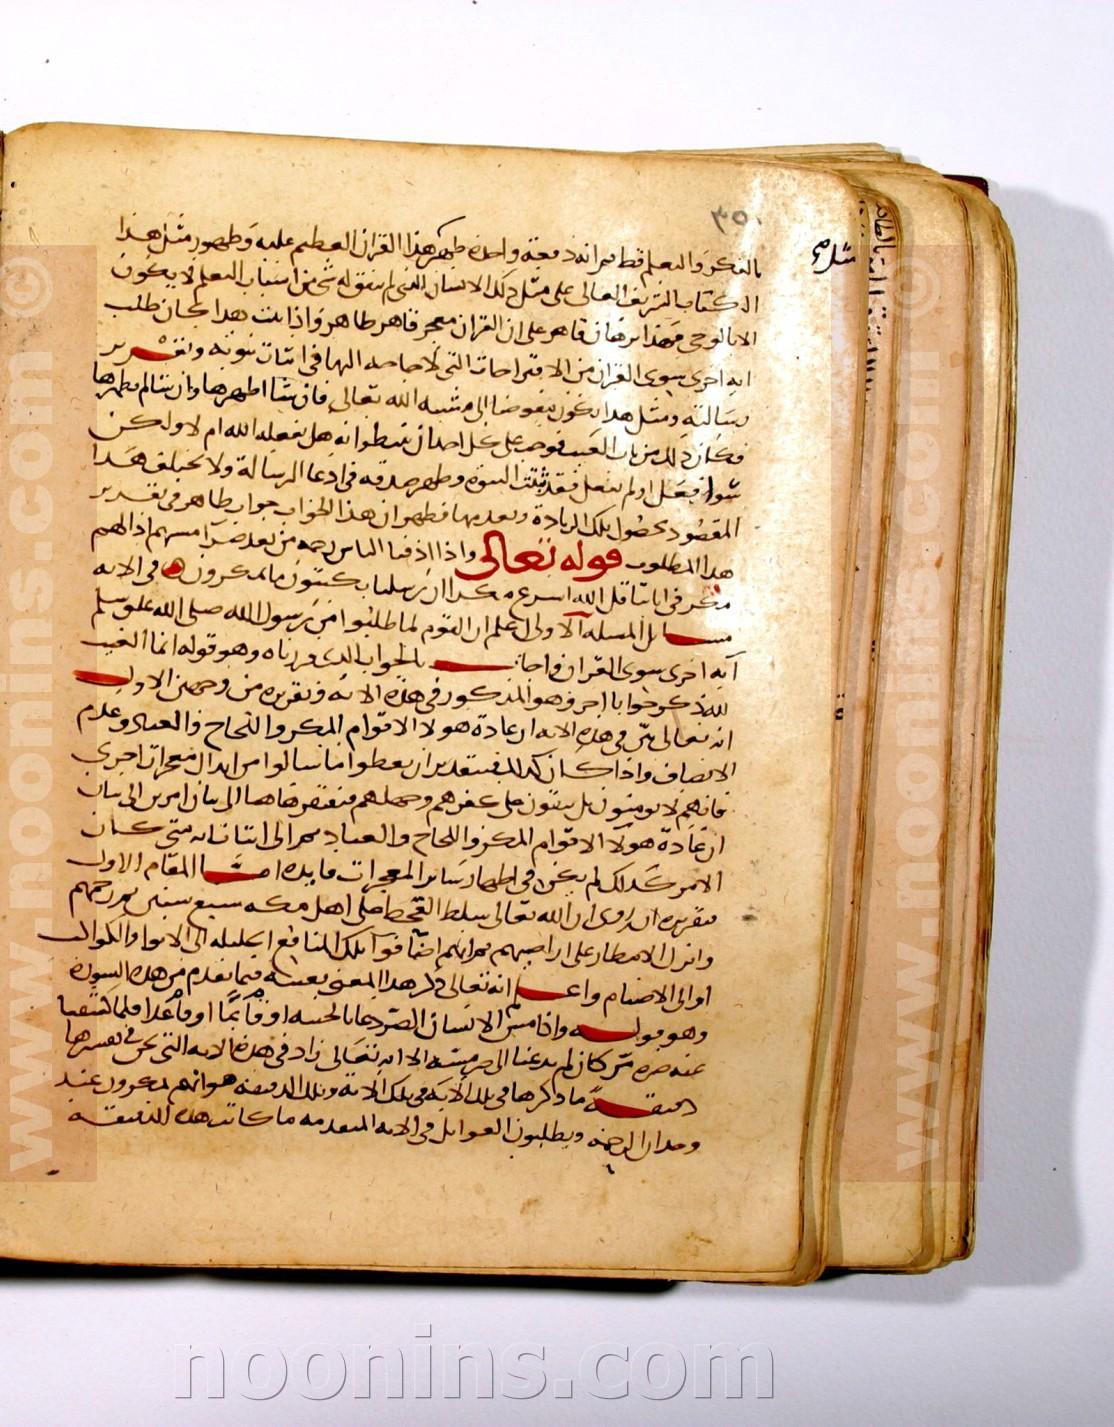 ٣٥٠
بالفكر والتعلم قط ثم انه دفعة واحدة ظهر هذا القران العظيم عليه وظهور مثل هذا
الكتاب الشريف العالى على مثل ذلك الانسان الذى لم يتفق له شى من اسباب التعلم لا يكون
الا بالوحى فهذا برهان قاهر على ان القران معجز قاهر ظاهر واذا ثبت هذا كان طلب
ايه اخرى سوى القران من الاقتراحات التى لا حاجة اليها فى اثبات نبوته وتقرير
رسالته ومثل هذا يكون مفوضا الى مشية الله تعالى فان شا اظهرها وان شا لم يظهرها
فكان ذلك من باب الغيب فوجب على كل احد ان ينتظر انه هل يفعله الله ام لا ولكن
سوا فعل او لم يفعل فقد ثبتت النبوة وظهر صدقه فى ادعا الرسالة ولا يختلف هذا
المقصود بحصول تلك الزيادة وبعدمها فظهر ان هذا الجواب جواب ظاهر فى تقدير
هذا المطلوب قوله تعالى واذا اذقنا الناس رحمه من بعد ضرا مستهم اذا لهم
مكر فى اياتنا قل الله اسرع مكرا ان رسلنا يكتبون ما تمكرون فى الايه
مسائل المسله الاولى اعلم ان القوم لما طلبوا من رسول الله صلى الله عليه وسلم
آيه اخرى سوى القران واجاب بالجواب الذى قررناه وهو قوله انما الغيب
لله ذكر جوابا اخر وهو المذكور فى هذه الايه وتقريره من وجهين الاول
انه تعالى بين فى هذه الايه ان عادة هولا الاقوام المكر واللجاج والعناد وعدم
الانصاف واذا كان كذلك فبتقدير ان يعطوا ما سالوا من انزال معجزات اخرى
فانهم لا يومنون بل يبقون على كفرهم وجهلهم فنفتقر هاهنا الى بيان امرين الى بيان
ان عادة هولا الاقوام المكر واللجاج والعناد ثم الى اثبات انه متى كان
الامر كذلك لم يكن فى اظهار سائر المعجزات فايده اما المقام الاول
فتقريره انه روى ان الله تعالى سلط القحط على اهل مكه سبع سنين ثم رحمهم
وانزل الامطار على اراضيهم ثم انهم اضافوا تلك المنافع الجليله الى الانوا والكواكب
او الى الاصنام واعلم انه تعالى ذكر هذا المعنى بعينه فيما تقدم من هذه السورة
وهو قوله واذا مس الانسان الضر دعانا لجنبه او قائما او قاعدا فلما كشفنا
عنه ضره مر كان لم يدعنا الى ضر مسه الا انه تعالى زاد فى هذه الايه التى نحن فى تفسيرها
دقيقة ما ذكرها فى تلك الاية وتلك الدقيقه هو انهم يمكرون عند
وجدان الرحمة ويطلبون الغوايل فى الايه المتقدمه ما كانت هذه الدقيقة